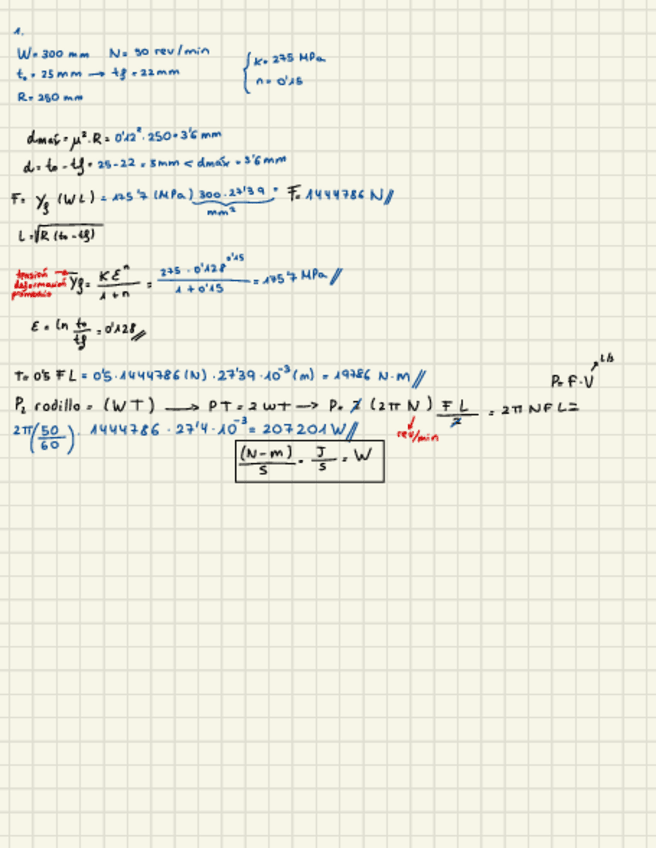 1.
W = 300 mm N = 50 rev/min
t₀ = 25 mm → tf = 22 mm { K = 275 MPa
R = 250 mm n = 0'15
dmáx = μ². R = 0'12². 250 = 3'6 mm
d = t₀ - tf = 25-22 = 3mm < dmáx = 3'6 mm
F = Yf (WL) = 175'7 (MPa) 300.27'39 = F = 1444786 N//
mm²
L = √R (t₀ - tf)
tensión deformación promedio → Yf = Kεⁿ / 1+n = 275 . 0'128^0'15 / 1 + 0'15 = 175'7 MPa//
ε = ln t₀/tf = 0'128//
T = 0'5 F L = 0'5.1444786 (N) . 27'39.10⁻³ (m) = 19786 N.m//
P = F.V
P rodillo = (WT) → PT = 2wt → P = 2 (2π N) FL/2 = 2π NFL =
rev/min
2π(50/60). 1444786 . 27'4.10⁻³ = 207201 W//
(N-m)/s = J/s = W